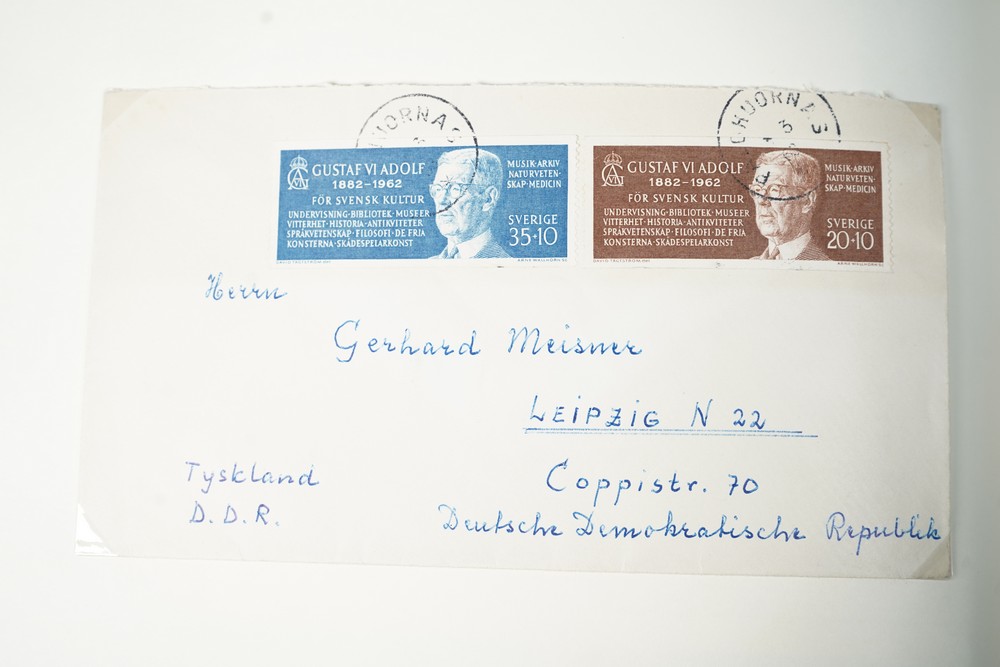 GUSTAF VI ADOLF
1882-1962
FÖR SVENSK KULTUR
UNDERVISNING·BIBLIOTEK·MUSEER
VITTERHET·HISTORIA·ANTIKVITETER
SPRÅKVETENSKAP·FILOSOFI·DE FRIA
KONSTERNA·SKÅDESPELARKONST
MUSIK·ARKIV
NATURVETEN-
SKAP·MEDICIN
SVERIGE
35+10
GUSTAF VI ADOLF
1882-1962
FÖR SVENSK KULTUR
UNDERVISNING·BIBLIOTEK·MUSEER
VITTERHET·HISTORIA·ANTIKVITETER
SPRÅKVETENSKAP·FILOSOFI·DE FRIA
KONSTERNA·SKÅDESPELARKONST
MUSIK·ARKIV
NATURVETEN-
SKAP·MEDICIN
SVERIGE
20+10
Herrn
Gerhard Meisner
LEIPZIG N 22
Coppistr. 70
Tyskland
D.D.R.
Deutsche Demokratische Republik